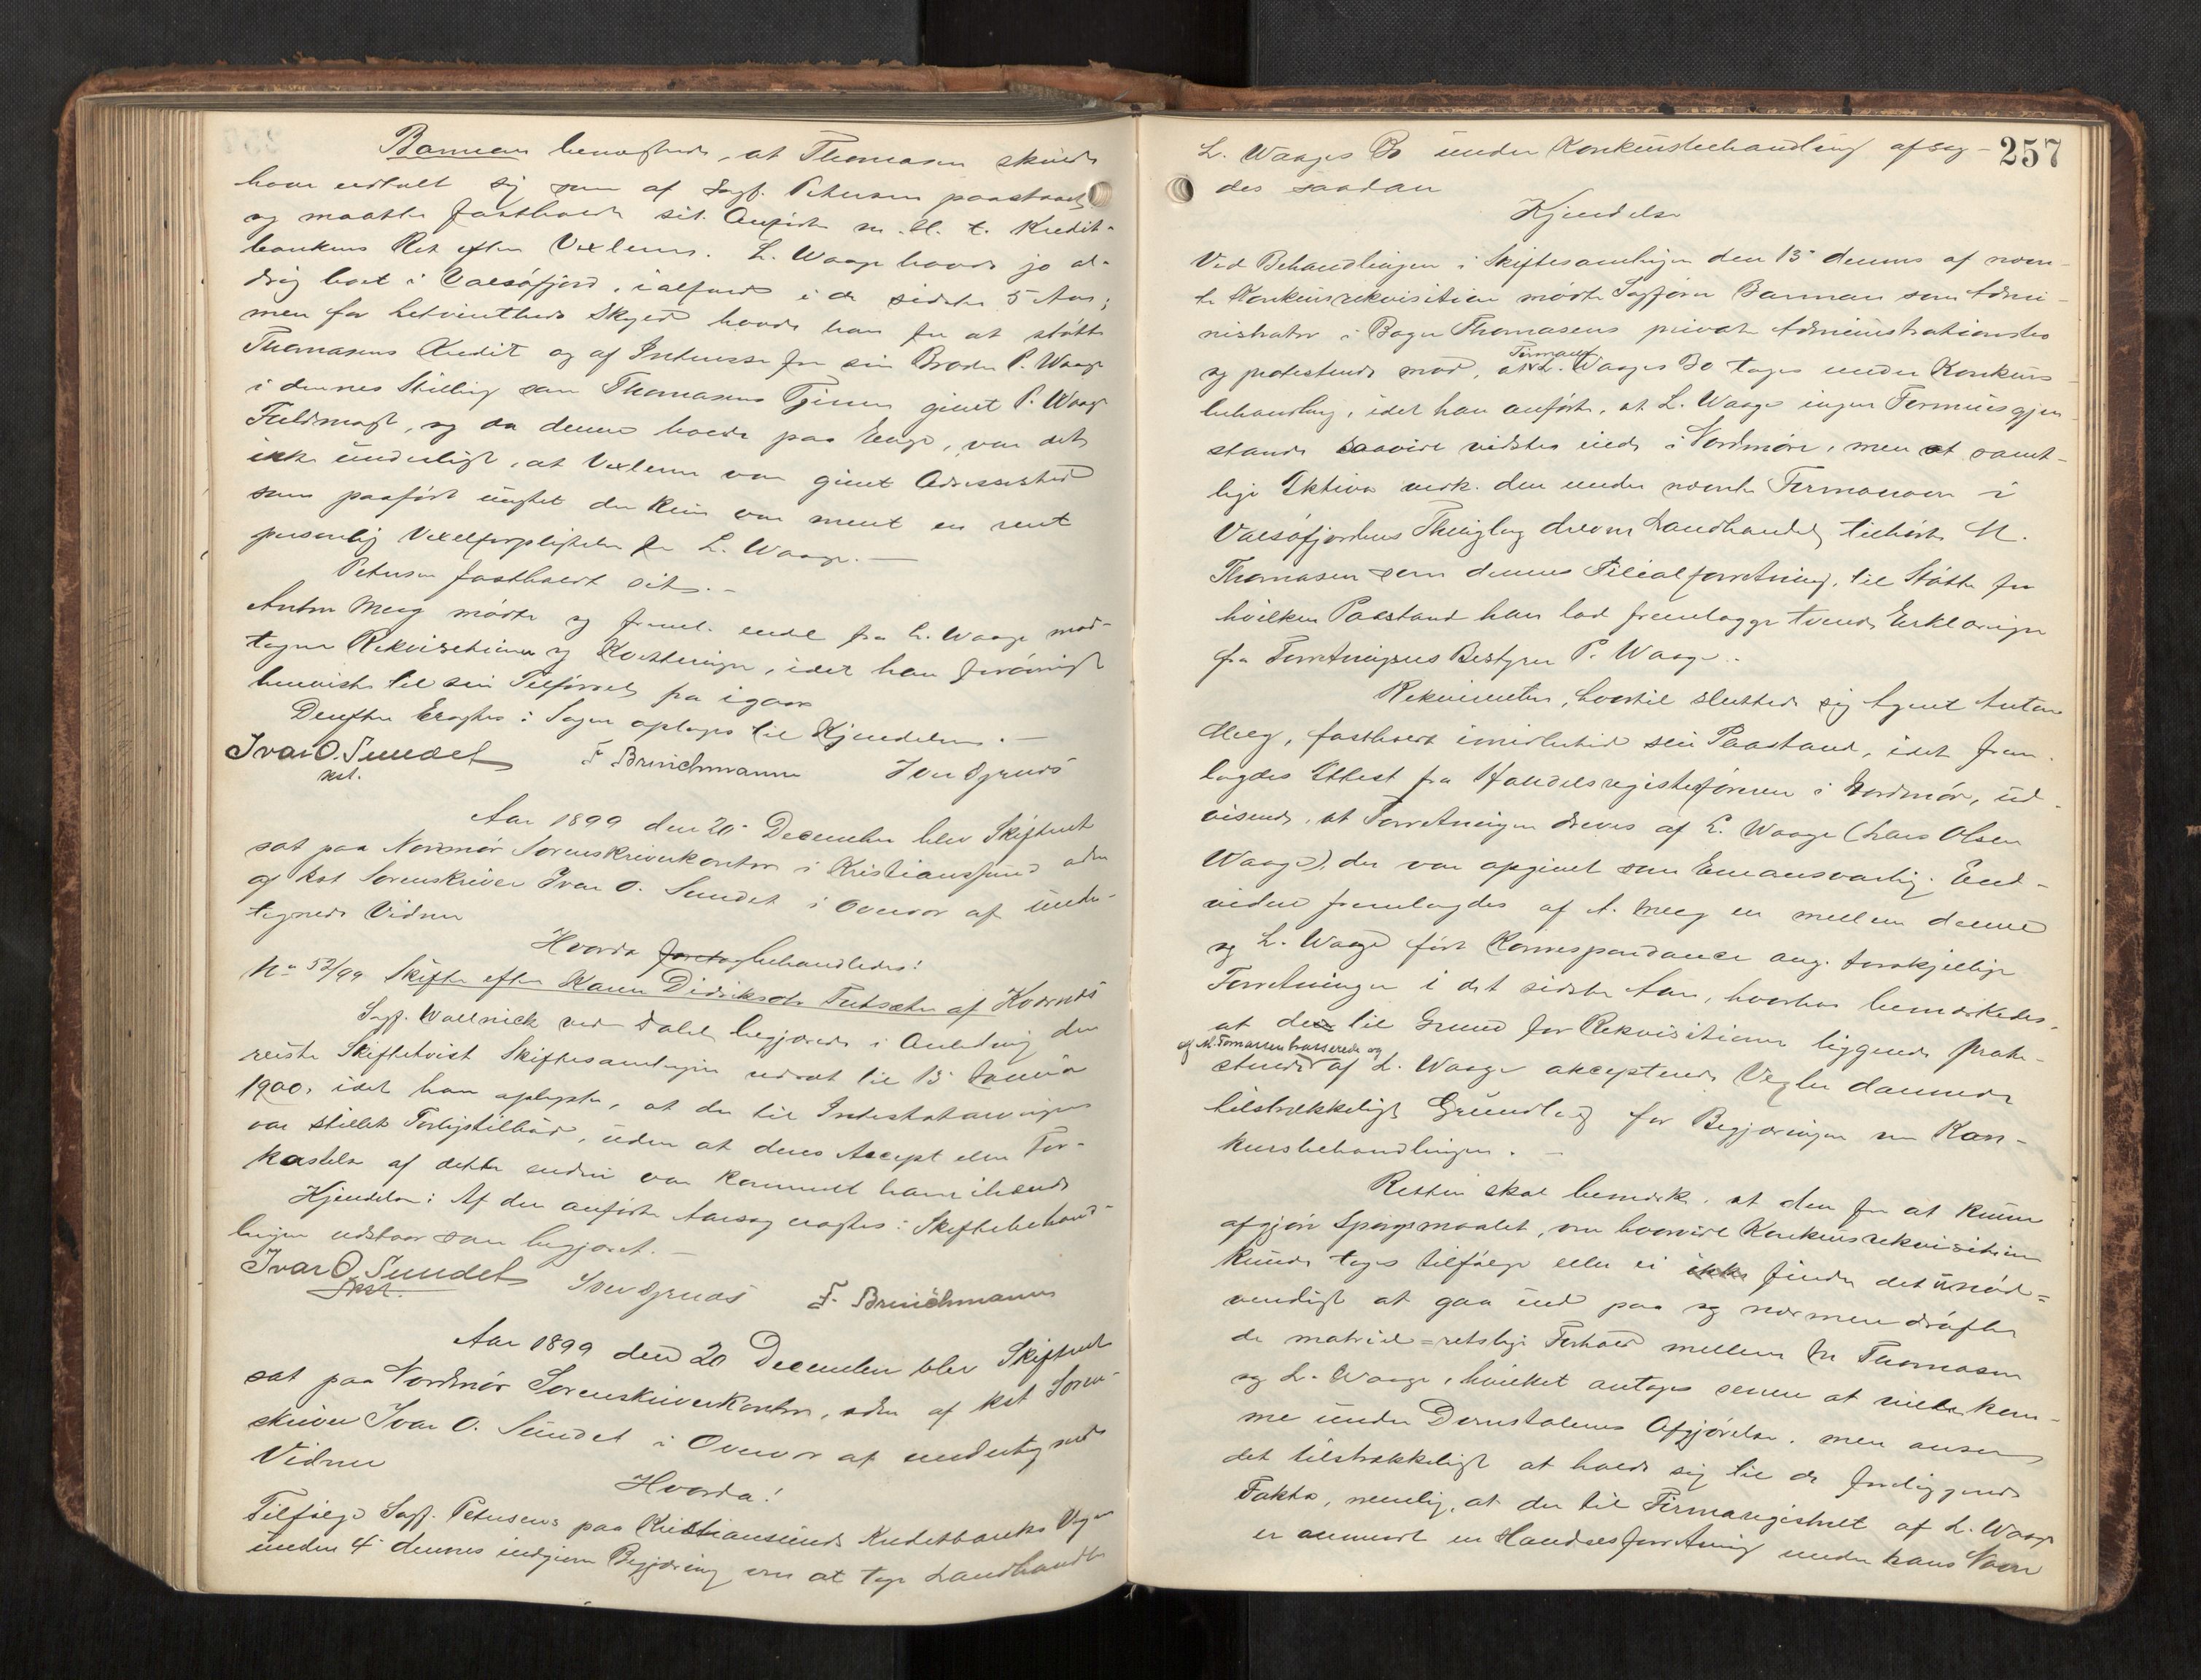 Barman benægtede, at Thomasen skulde
have udtalt sig som af Sagf. Petersen paastaaet
og maatte fastholde sit Anførte m. H. t. Kredit-
bankens Ret efter Vexlerne. L. Waage havde jo al-
drig boet i Valsøfjord, ialfald i de sidste 5 Aar;
men for Letvindtheds Skyld havde han for at støtte
Thomasens Kredit og af Interesse for sin Broder P. Waage
i dennes Stilling som Thomasens Tjener givet P. Waage
Fuldmagt, og da denne boede paa Enge, var det
ikke underligt, at Vexlerne var givet Adressested
som paaført uagtet der kun var ment en rent
personlig Vexelforpligtelse for L. Waage. —
Petersen fastholdt sit. —
Anton Meeg mødte og freml. endel fra L. Waage mod-
tagne Rekvisitioner og Kvitteringer, idet han forøvrigt
henviste til sin Tilførsel fra igaar
Derefter Eragtes: Sagen optages til Kjendelse. —
Ivar O. Sundet
kst.
F Brinchmann
Iver Grnds
Aar 1899 den 20 December blev Skifteret
sat paa Nordmør Sorenskriverkontor i Kristianssund adm
af kst Sorenskriver Ivar O. Sundet i Overvær af under-
tegnede Vidner
Hvorda foretog behandledes:
No 52/99 Skifte efter Karen Didriksdr Tutsæter af Kværnes
Sagf. Wallnick ved Dahl begjærede i Anledning den
reiste Skiftetvist Skiftesamlingen udsat til 15 Januar
1900, idet han oplyste, at der til Intestatarvingerne
var stillet Forligstilbud, uden at deres Accept eller For-
kastelse af dette endnu var kommet ham ihænde
Kjendelse: Af den anførte Aarsag eragtes: Skiftebehand-
lingen udstaar som begjæret. —
Ivar O. Sundet
kst.
Iver Grnds
F. Brinchmann
Aar 1899 den 20 December blev Skifteret
sat paa Nordmør Sorenskriverkontor, adm af kst Soren-
skriver Ivar O. Sundet i Overvær af undertegnede
Vidner
Hvorda:
Tilfølge Sagf. Petersens paa Kristianssunds Kreditbanks Vegne
under 4 dennes indgivne Begjæring om at tage Landhandler
257
L. Waages Bo under Konkursbehandling afsag-
des saadan
Kjendelse
Ved Behandlingen i Skiftesamlingen den 15 dennes af nævn-
te Konkursrekvisition mødte Sagfører Barman som Admi-
nistrator i Bager Thomasens private Administrationsbo
og protesterede mod, at Firmaet L. Waages Bo tages under Konkurs-
behandling, idet han anførte, at L. Waage ingen Formuesgjen-
stande saavidt vidstes eiede i Nordmøre, men at samt-
lige Aktiva vedk. den under nævnte Firmanavn i
Valsøfjordens Thinglag drevne Landhandel tilhørte M.
Thomasen som dennes Filialforretning, til Støtte for
hvilken Paastand han lod fremlægge tvende Erklæringer
fra Forretningens Bestyrer P. Waage. —
Rekvirenten, hvortil sluttede sig Agent Anton
Meeg, fastholdt imidlertid sin Paastand, idet frem-
lagdes Attest fra Handelsregisterføreren i Nordmør, ud-
visende, at Forretningen dreves af L. Waage (Lars Olsen
Waage), der var opgivet som Eneansvarlig. End-
videre fremlagdes af A. Meeg en mellem denne
og L. Waage ført Korrespondance ang. forskjellige
Forretninger i det sidste Aar, hvorhos bemærkedes,
at den til Grund for Rekvisitionen liggende prote-
sterede af M. Tomassen trasserede og af L. Waage aksepterede Vexler dannede
tilstrækkeligt Grundlag for Begjæringen om Kon-
kursbehandlingen. —
Retten skal bemærke, at den for at kunne
afgjøre Spørgsmaalet, om hvorvidt Konkursrekvisitionen
kunde tages tilfølge eller ei ikke finder det unød-
vendigt at gaa ind paa og nærmere drøfte
de matriel=retslige Forhold mellem M Thomasen
og L. Waage, hvilket antages senere at ville kom-
me under Domstolenes Afgjørelse, men anser
det tilstrækkeligt at holde sig til de foreliggende
Fakta, nemlig, at der til Firmaregistret af L. Waage
er anmeldt en Handelsforretning under hans Navn